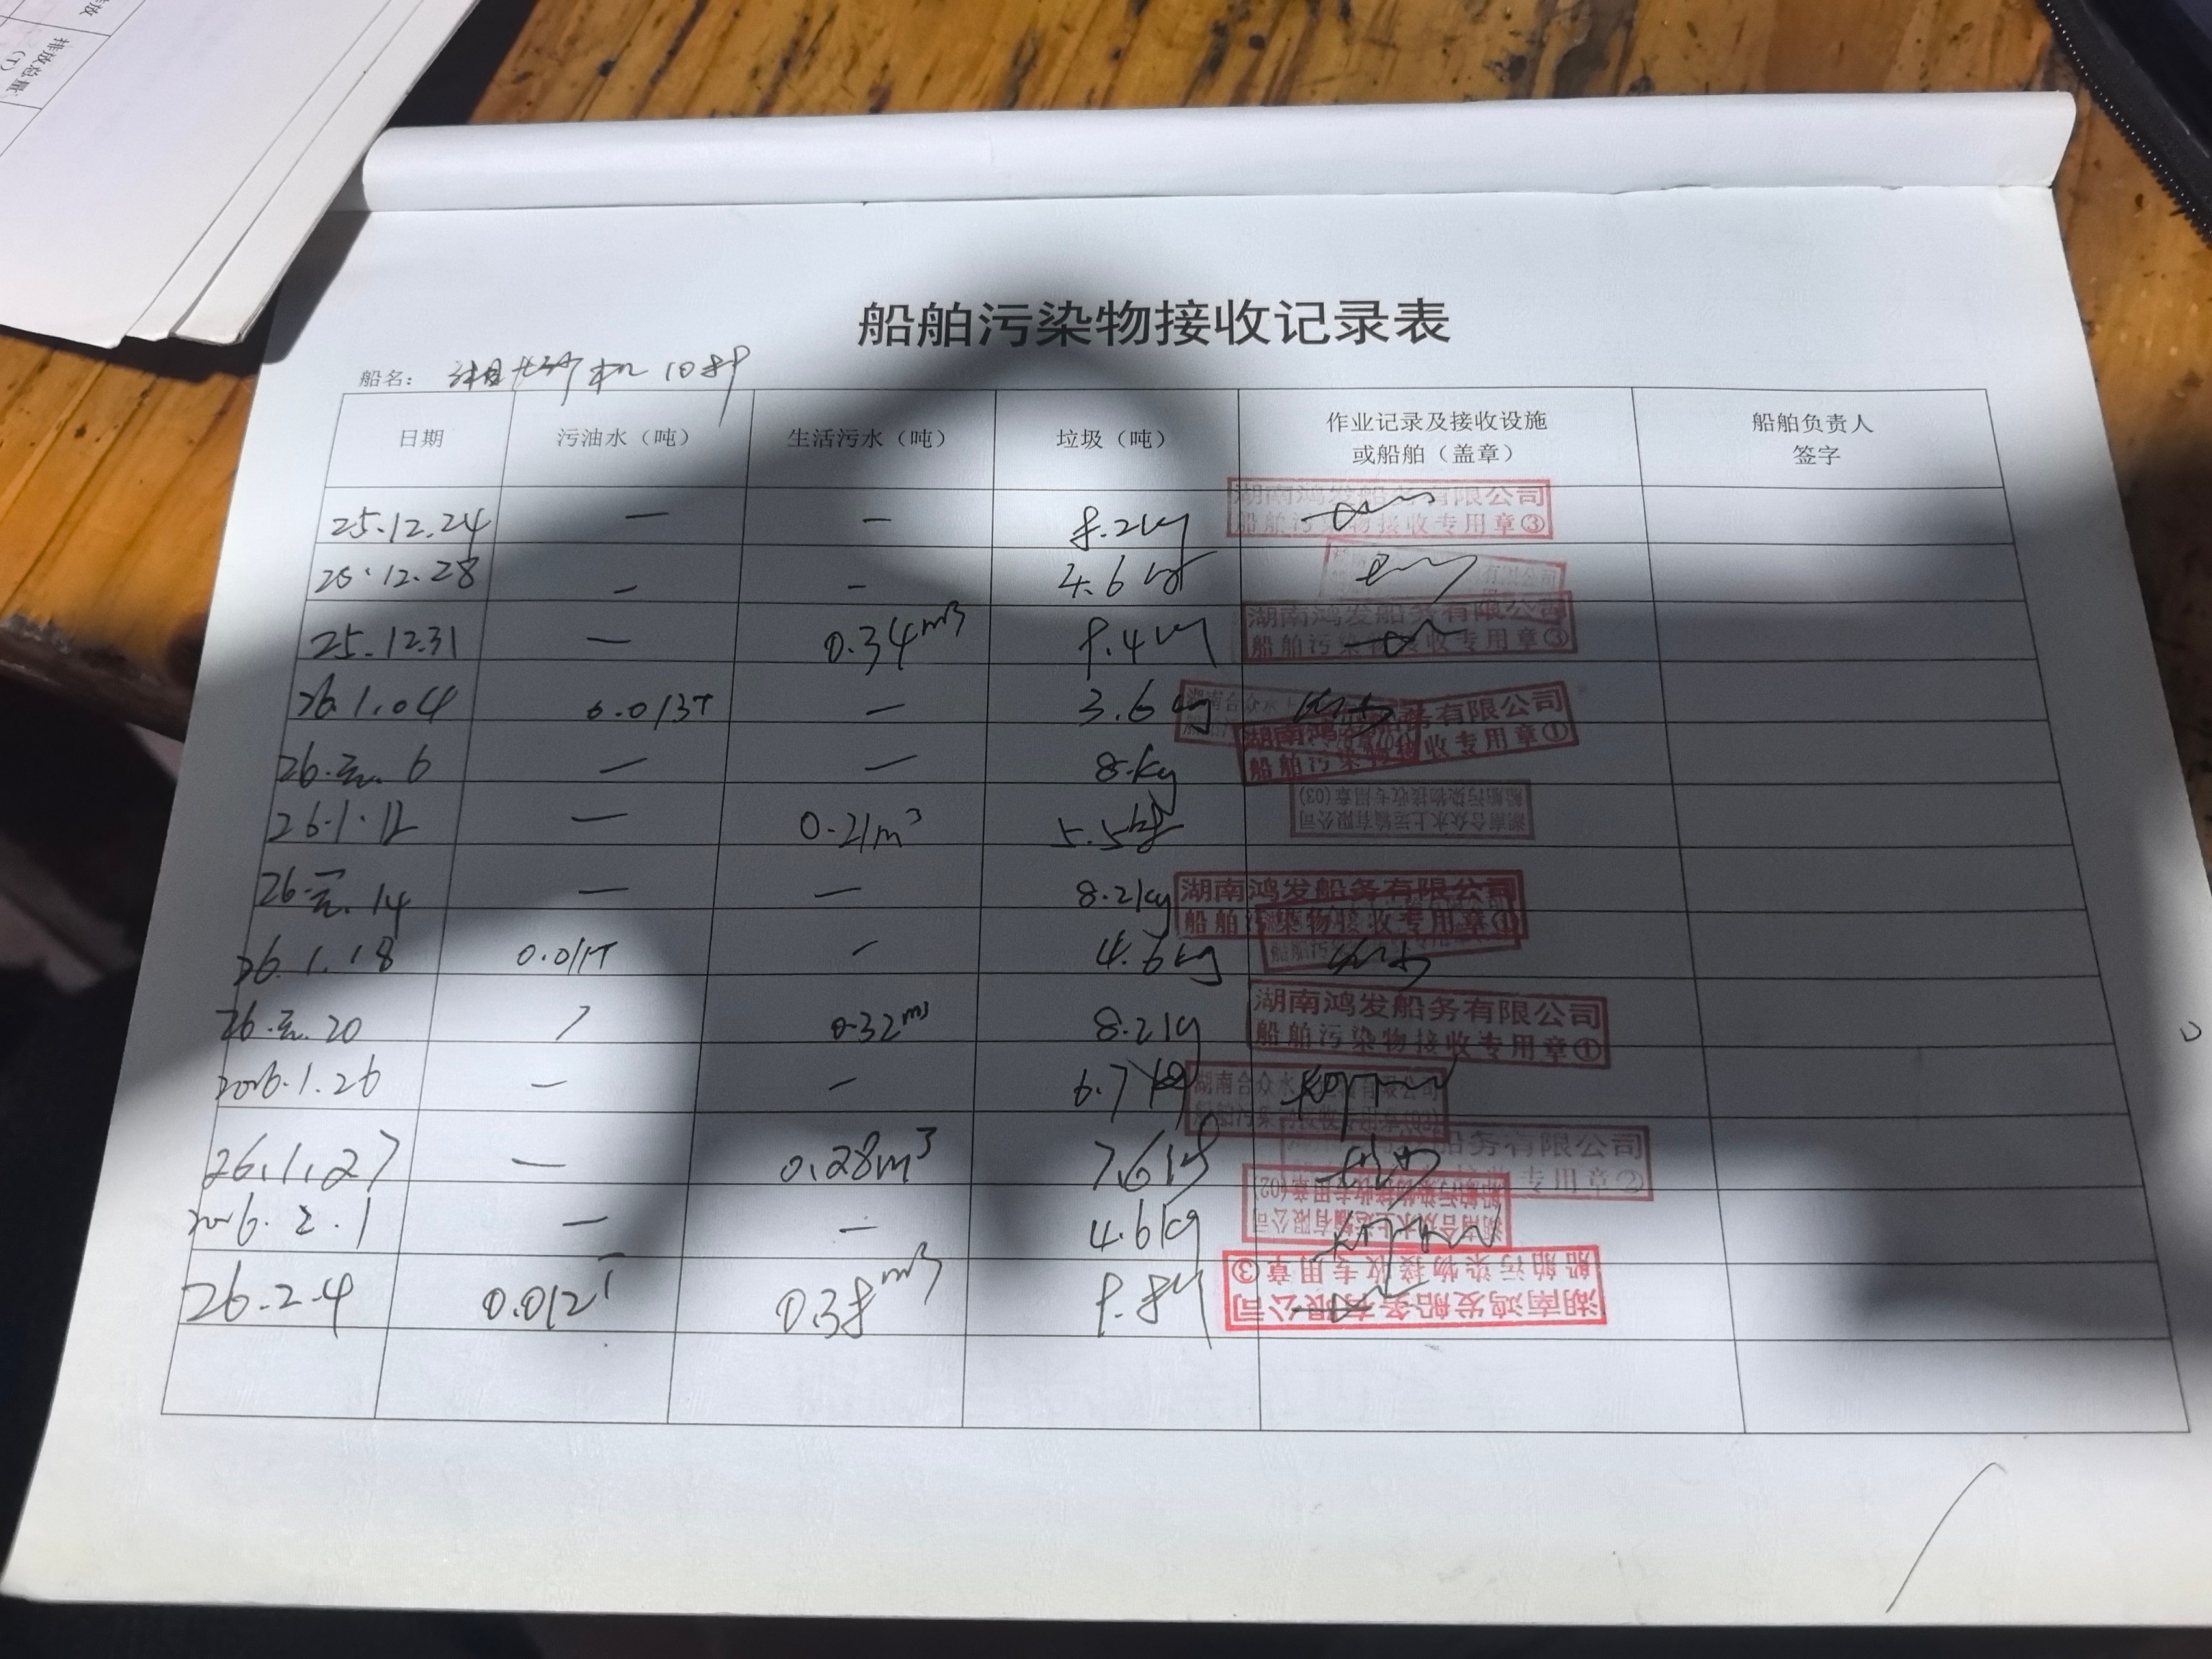 排放总量
(T)
船舶污染物接收记录表
船名： 湘长沙机
日期 污油水（吨） 生活污水（吨） 垃圾（吨） 作业记录及接收设施或船舶（盖章） 船舶负责人签字
25.12.24 — — 8.2kg 湖南鸿发船务有限公司 船舶污染物接收专用章③
25.12.28 — — 4.6kg 有限公司
25.12.31 — 0.34m³ 8.4kg 湖南鸿发船务有限公司 船舶污染物接收专用章③
26.1.04 0.013T — 3.6kg 湖南合众水上
26.元.6 — — 8.kg 湖南鸿发船务有限公司 船舶污染物接收专用章①
26.1.12 — 0.21m³ 5.5kg 湖南合众水上运输有限公司 船舶污染物接收专用章(03)
26.元.14 — — 8.2kg 湖南鸿发船务有限公司 船舶污染物接收专用章①
26.1.18 0.011T — 4.6kg 船舶污
26.元.20 / 0.32m³ 8.2kg 湖南鸿发船务有限公司 船舶污染物接收专用章①
2026.1.26 — — 6.7kg 湖南合众水
26.1.27 — 0.28m³ 7.6kg 船务有限公司 专用章②
2026.2.1 — — 4.6kg 湖南合众水上运输有限公司 船舶污染物接收专用章(02)
26.2.4 0.012T 0.38m³ 8.8kg 湖南鸿发船务有限公司 船舶污染物接收专用章③